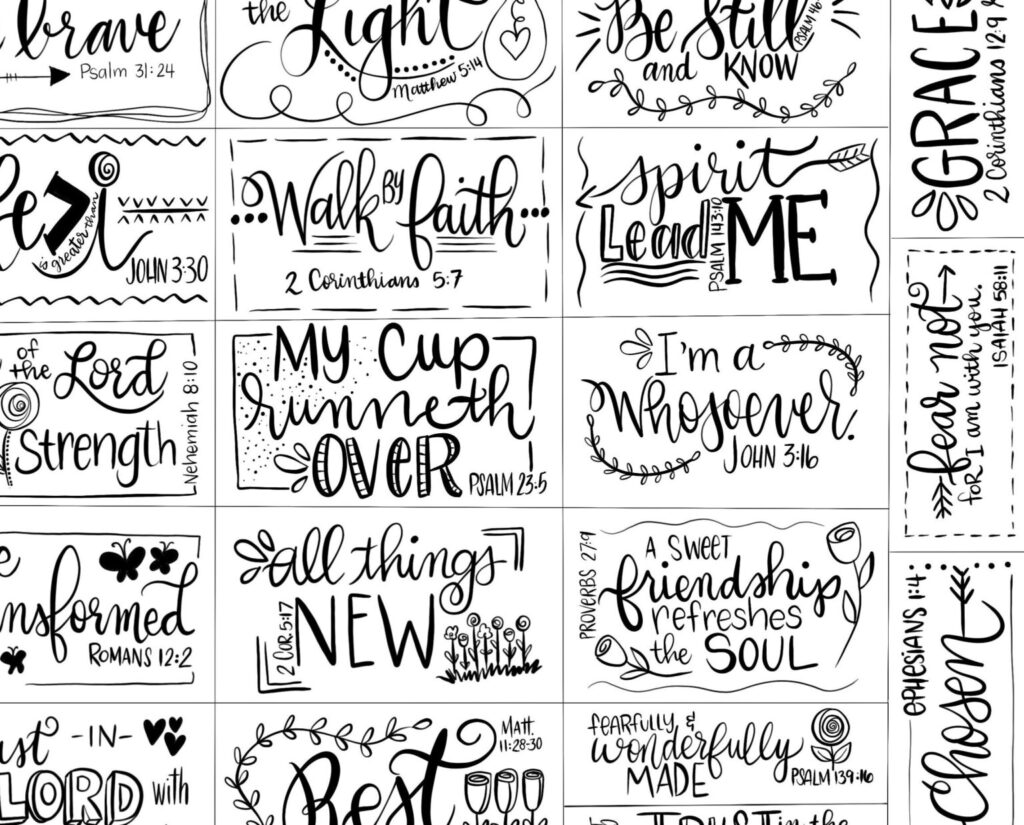 brave
Psalm 31:24
the
Light
Matthew 5:14
Be Still
and KNOW
PSALM 46
GRACE
2 Corinthians 12:9
is greater than
i
JOHN 3:30
Walk BY faith
2 Corinthians 5:7
spirit
Lead ME
PSALM 143:10
fear not
for I am with you.
ISAIAH 58:11
of
the Lord
Strength
Nehemiah 8:10
My Cup
runneth
OVER
PSALM 23:5
I'm a
Whosoever.
JOHN 3:16
nsformed
ROMANS 12:2
all things
NEW
2 Cor. 5:17
PROVERBS 27:9
A SWEET
friendship
refreshes
the SOUL
EPHESIANS 1:4
Chosen
ust -IN-
LORD with
Matt.
11:28-30
Rest
fearfully &
wonderfully
MADE
PSALM 139:16
TRUST in the